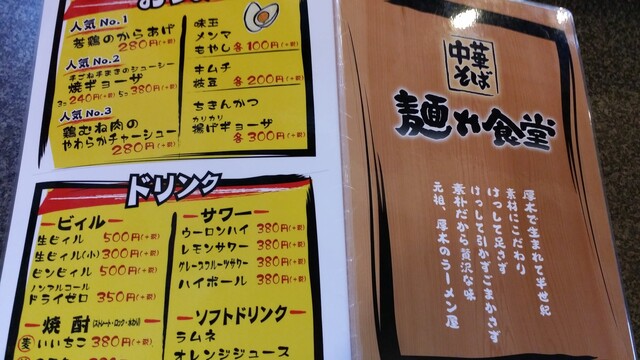 人気No.1
若鶏のからあげ
280円(+税)
人気No.2
手ごね手ままのジューシー
焼ギョーザ
3コ240円(+税) 5コ380円(+税)
人気No.3
鶏むね肉の
やわらかチャーシュー
280円(+税)
味玉
メンマ
もやし各100円(+税)
キムチ
枝豆 各200円(+税)
ちきんかつ
カリカリ
揚げギョーザ
各300円(+税)
ドリンク
ービィルー
生ビィル 500円(+税)
生ビィル(小)300円(+税)
ビンビィル 500円(+税)
ノンアルコール
ドライゼロ 350円(+税)
ー焼酎
麦 いいちこ 380円
ーサワーー
ウーロンハイ 380円(+税)
レモンサワー 380円(+税)
グレープフルーツサワー 380円(+税)
ハイボール 380円(+税)
ーソフトドリンクー
ラムネ
オレンジジュース
中華
そば
麺や食堂
厚木で生まれて半世紀
素材にこだわり
けっして足さず
けっして引かずごまかさず
素朴だから贅沢な味
元祖、厚木のラーメン屋